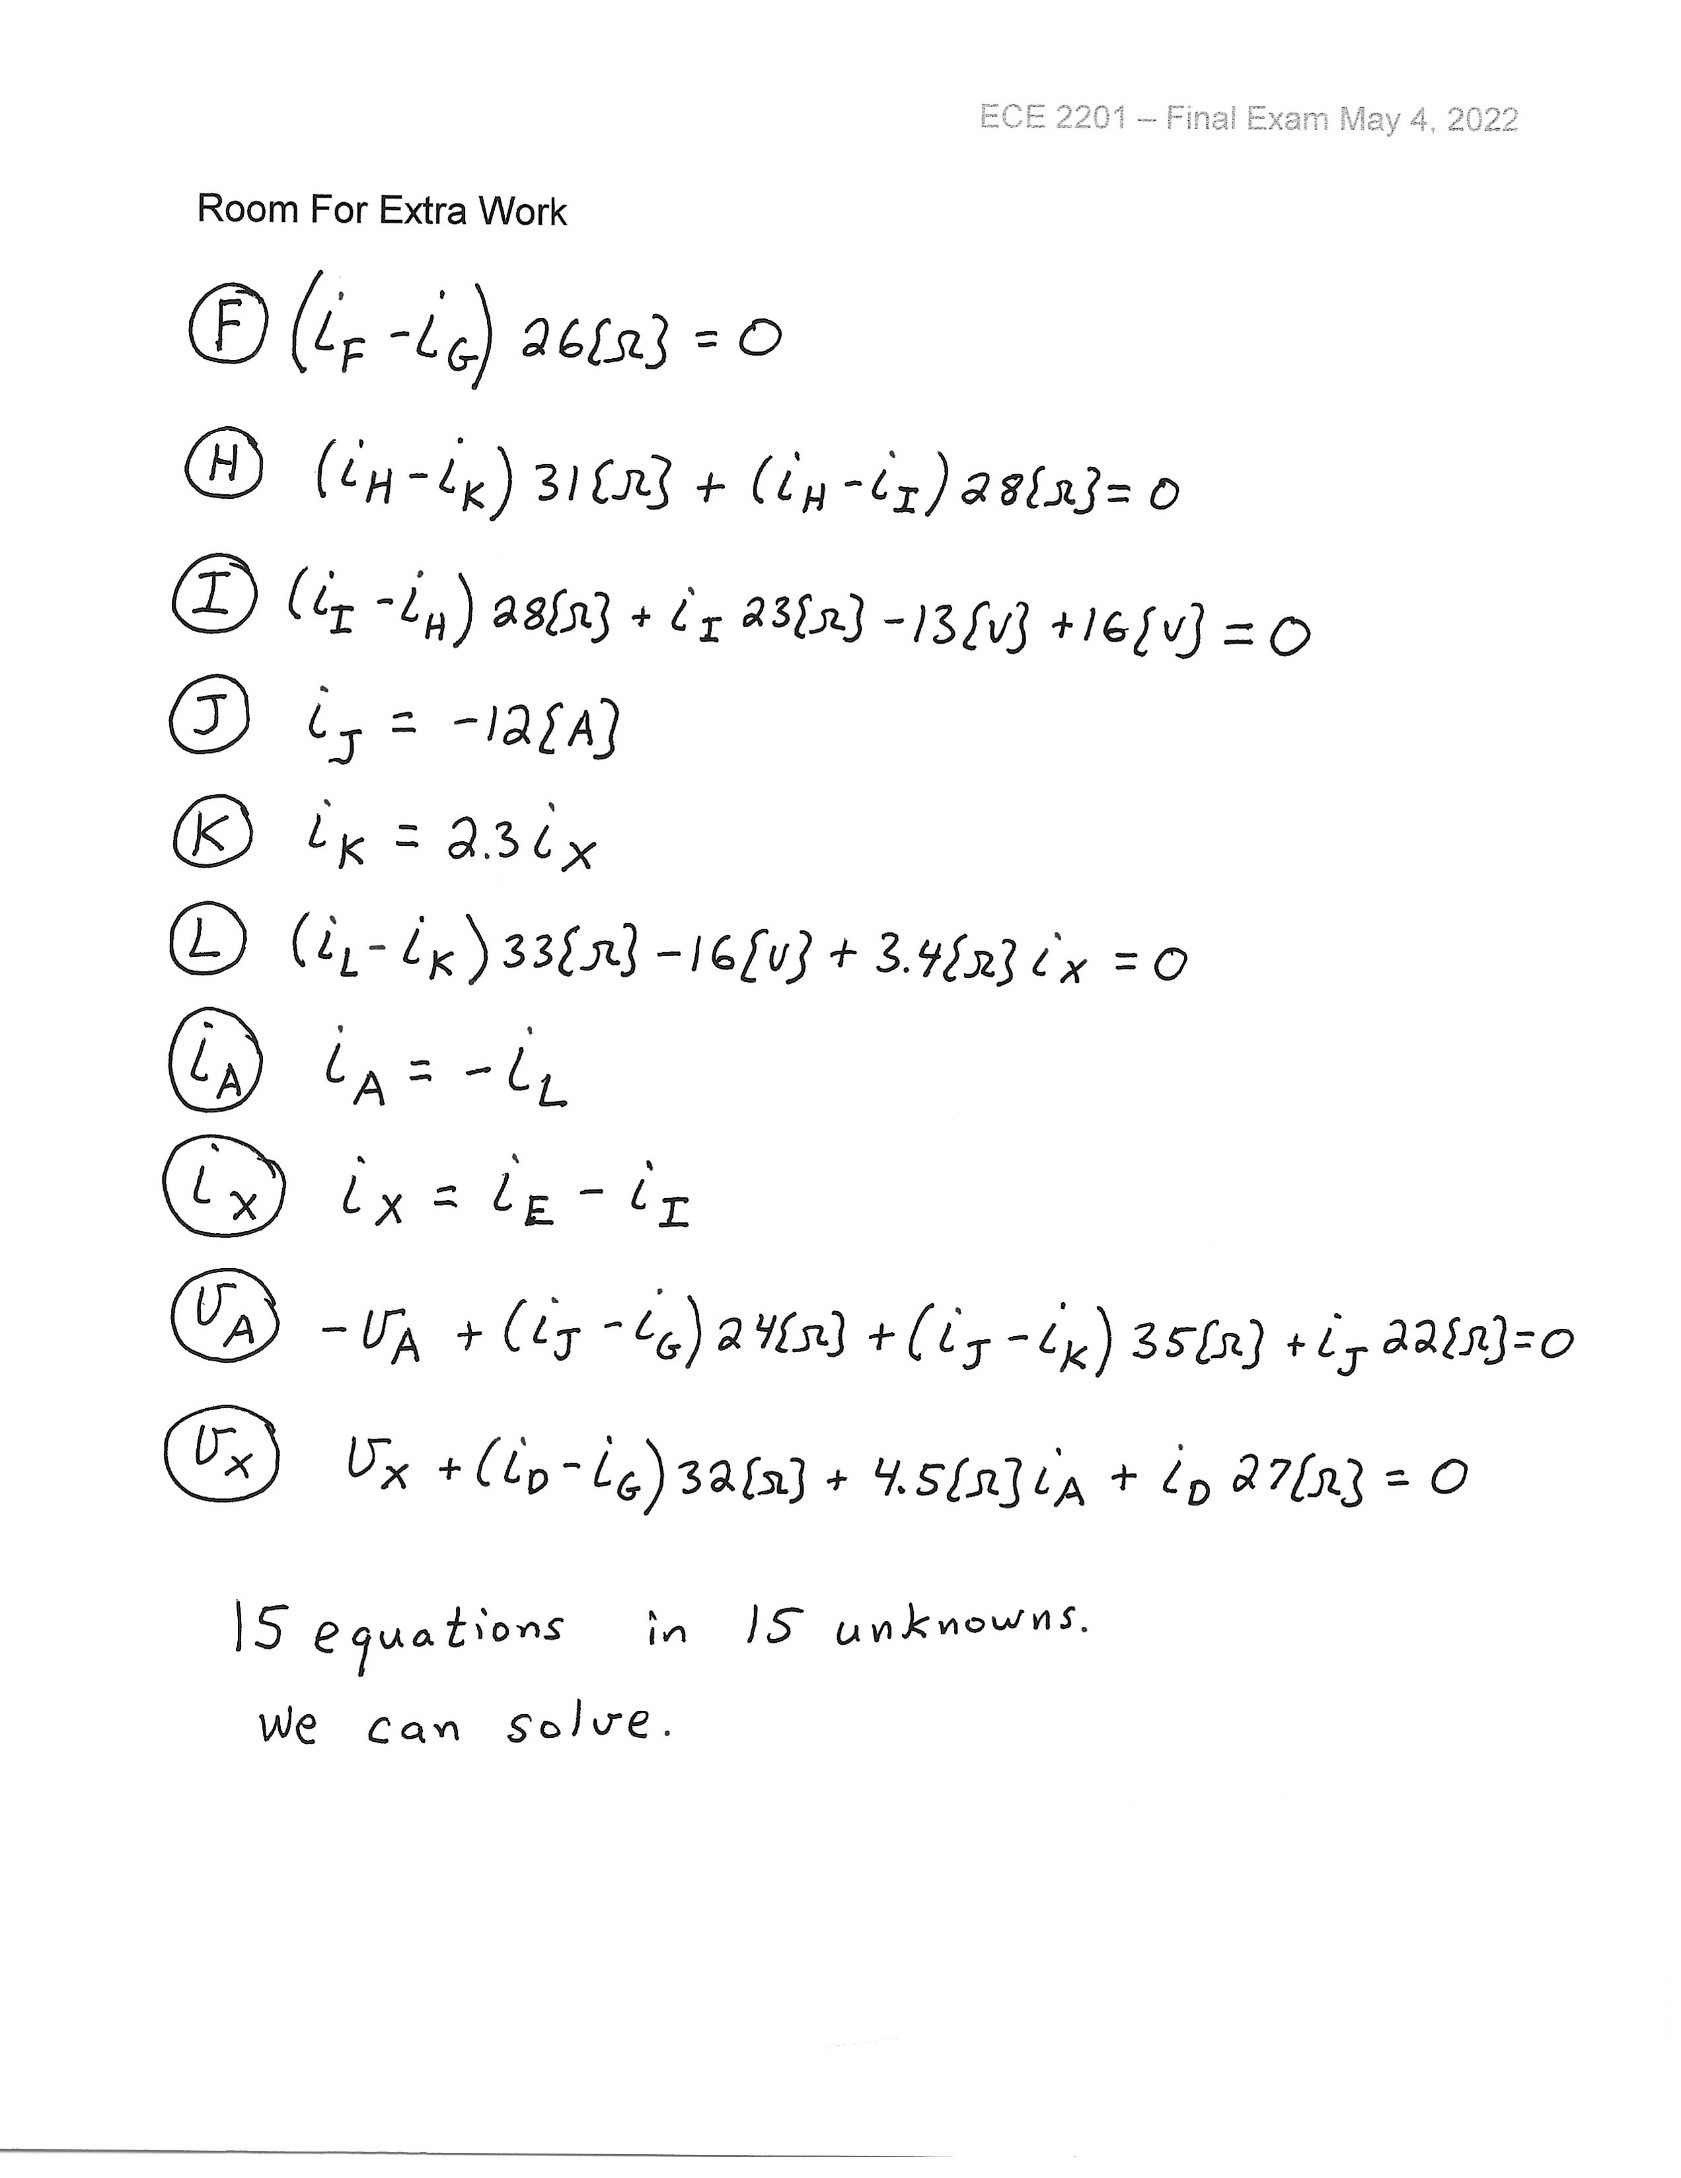 ECE 2201 – Final Exam May 4, 2022
Room For Extra Work
(F) (i_F - i_G) 26{Ω} = 0
(H) (i_H - i_K) 31{Ω} + (i_H - i_I) 28{Ω} = 0
(I) (i_I - i_H) 28{Ω} + i_I 23{Ω} - 13{V} + 16{V} = 0
(J) i_J = -12{A}
(K) i_K = 2.3 i_X
(L) (i_L - i_K) 33{Ω} - 16{V} + 3.4{Ω} i_X = 0
(i_A) i_A = - i_L
(i_X) i_X = i_E - i_I
(v_A) - v_A + (i_J - i_G) 24{Ω} + (i_J - i_K) 35{Ω} + i_J 22{Ω} = 0
(v_X) v_X + (i_D - i_G) 32{Ω} + 4.5{Ω} i_A + i_D 27{Ω} = 0
15 equations in 15 unknowns.
We can solve.